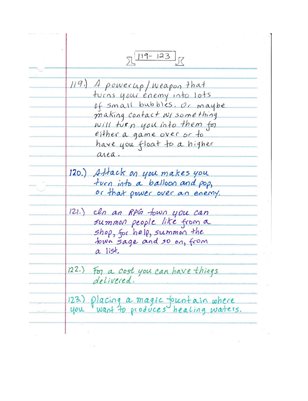 119-123
119.) A powerup/weapon that
turns your enemy into lots
of small bubbles. Or maybe
making contact w/ something
will turn you into them for
either a game over or to
have you float to a higher
area.
120.) Attack on you makes you
turn into a balloon and pop,
or that power over an enemy.
121.) In an RPG town you can
summon people like from a
shop, for help, summon the
town sage and so on, from
a list.
122.) For a cost you can have things
delivered.
123.) Placing a magic fountain where
you want to produces healing waters.